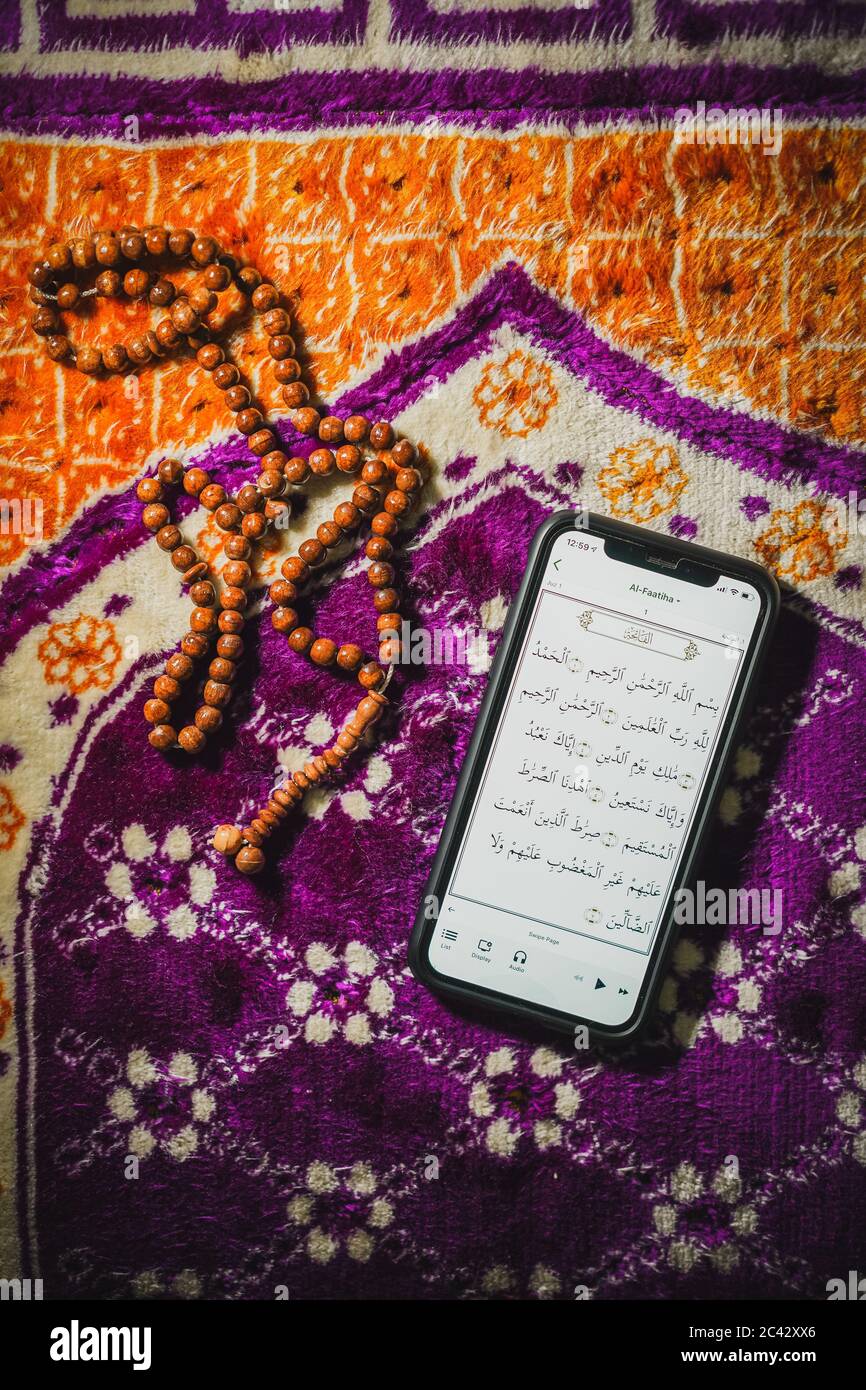 12:59
Juz 1
Al-Faatiha
1
الفاتحة
بِسْمِ ٱللَّهِ ٱلرَّحْمَٰنِ ٱلرَّحِيمِ ۝ ٱلْحَمْدُ
لِلَّهِ رَبِّ ٱلْعَٰلَمِينَ ۝ ٱلرَّحْمَٰنِ ٱلرَّحِيمِ
۝ مَٰلِكِ يَوْمِ ٱلدِّينِ ۝ إِيَّاكَ نَعْبُدُ
وَإِيَّاكَ نَسْتَعِينُ ۝ ٱهْدِنَا ٱلصِّرَٰطَ
ٱلْمُسْتَقِيمَ ۝ صِرَٰطَ ٱلَّذِينَ أَنْعَمْتَ
عَلَيْهِمْ غَيْرِ ٱلْمَغْضُوبِ عَلَيْهِمْ وَلَا
ٱلضَّآلِّينَ ۝
Swipe Page
List
Display
Audio
alamy
Image ID: 2C42XX6
www.alamy.com